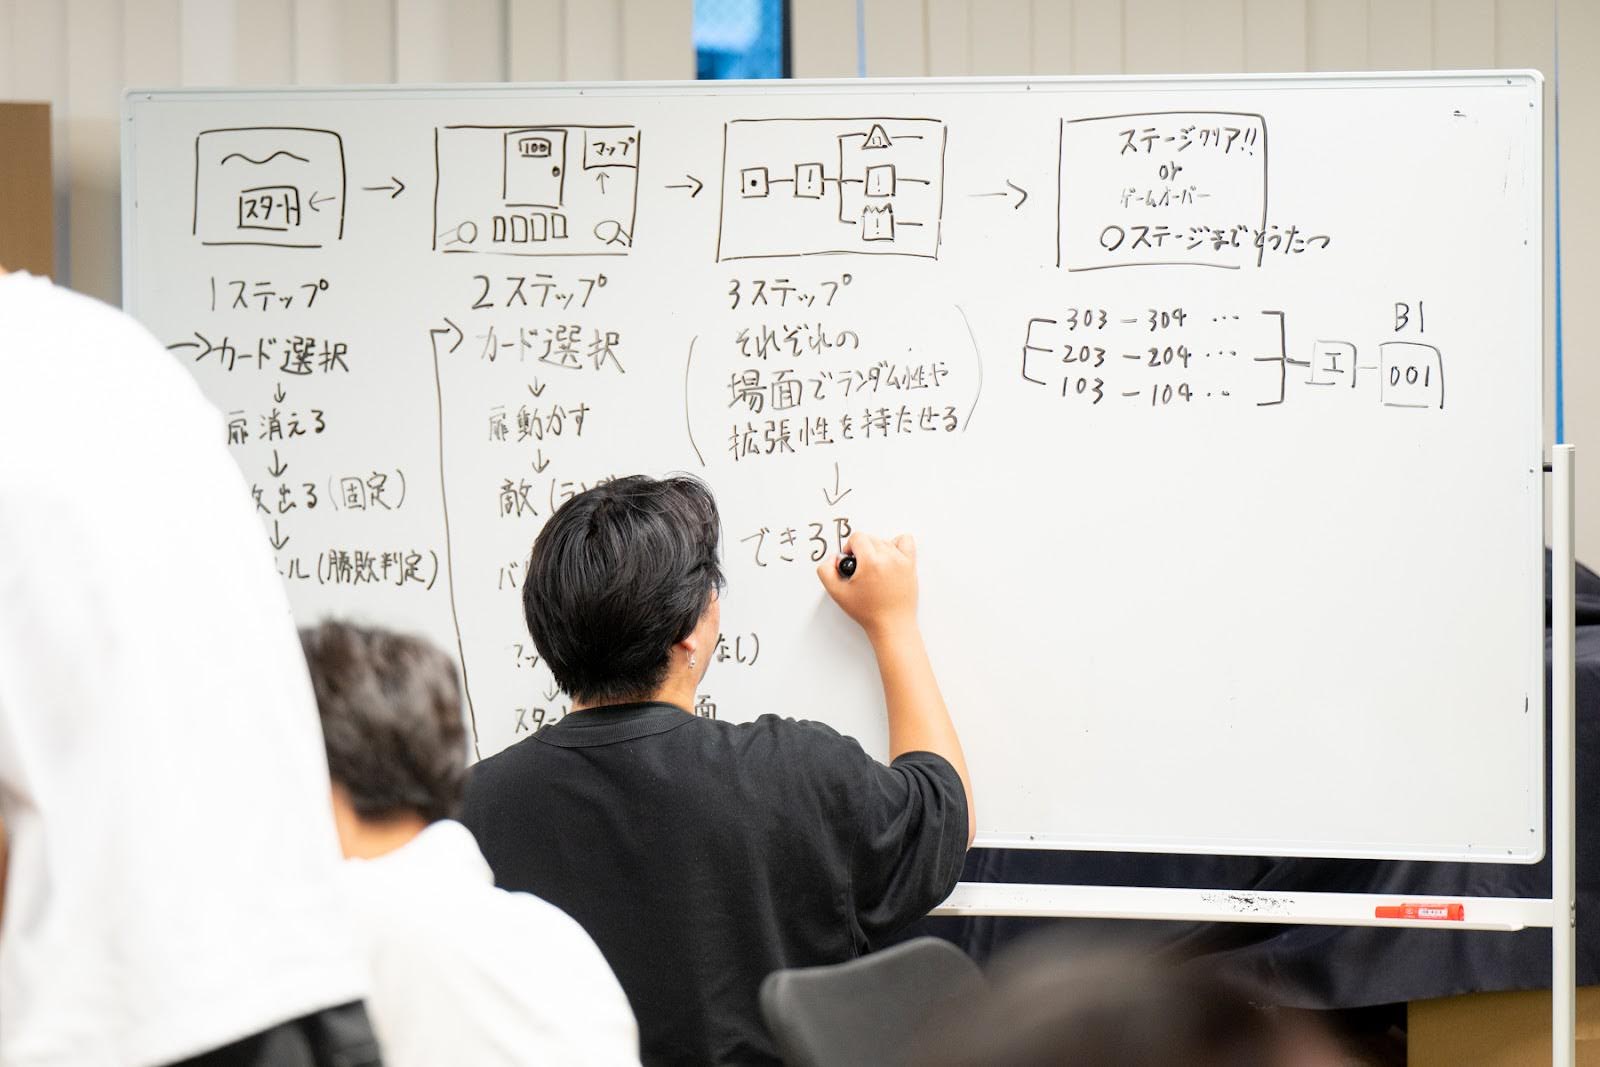 スタート
100
マップ
!
!
!
ステージクリア!!
or
ゲームオーバー
○ステージまでとうたつ
1ステップ
→カード選択
↓
扉消える
↓
出る(固定)
↓
トル(勝敗判定)
2ステップ
カード選択
↓
扉動かす
↓
敵(
バ
なし)
↓
スタート
面
3ステップ
(それぞれの
場面でランダム性や
拡張性を持たせる)
↓
できる
303 − 304 …
203 − 204 …
103 − 104 …
エ
B1
001